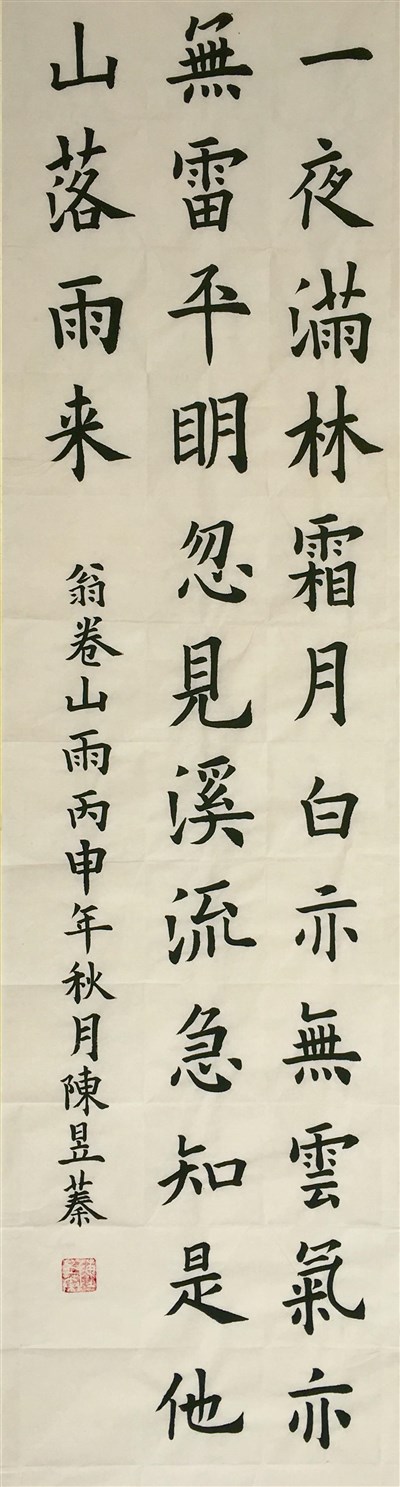 一夜滿林霜月白亦無雲氣亦
無雷平明忽見溪流急知是他
山落雨来
翁卷山雨丙申年秋月陳昱蓁